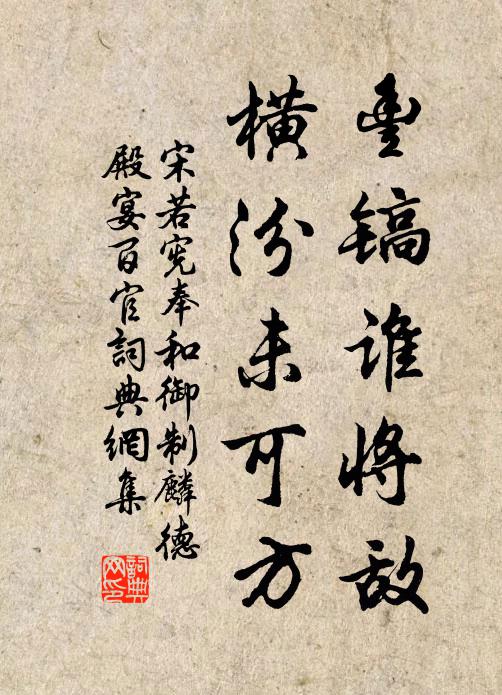 豊镐谁将敌
横汾未可方
宋若宪奉和御制麟德
殿宴百官詞典網集
詞典网印